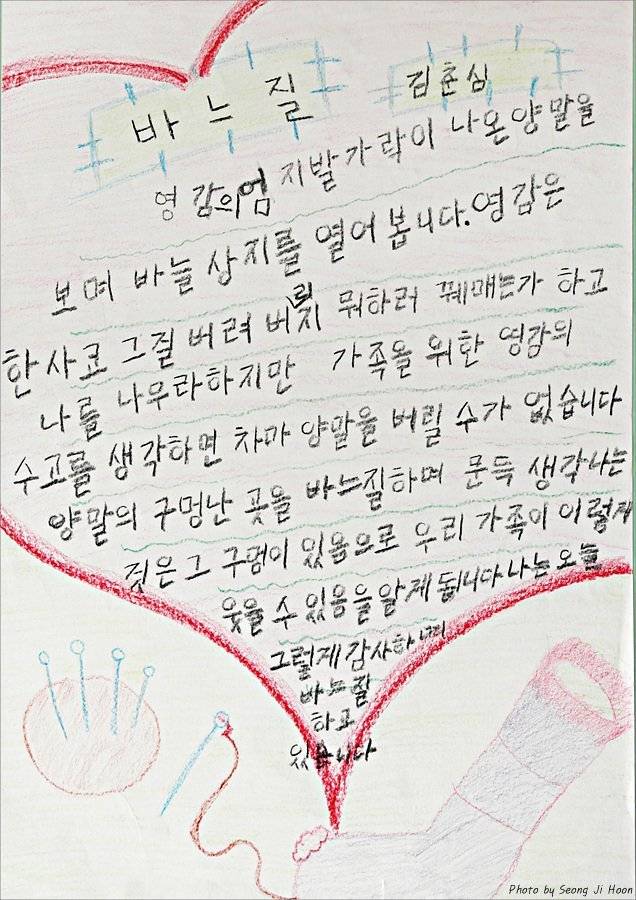 바느질 김춘심
영감의 엄지발가락이 나온 양말을
보며 바늘 상지를 열어 봅니다. 영감은
한사코 그질 버려 버릭지 뭐하러 꿰매는가 하고
나를 나우라하지만 가족을 위한 영감의
수고를 생각하면 차마 양말을 버릴 수가 없습니다
양말의 구멍난 곳을 바느질하며 문득 생각나는
것은 그 구멍이 있음으로 우리 가족이 이렇게
웃을 수 있음을 알게 됩니다. 나는 오늘
그렇게 감사하며
바느질
하고
있습니다
Photo by Seong Ji Hoon